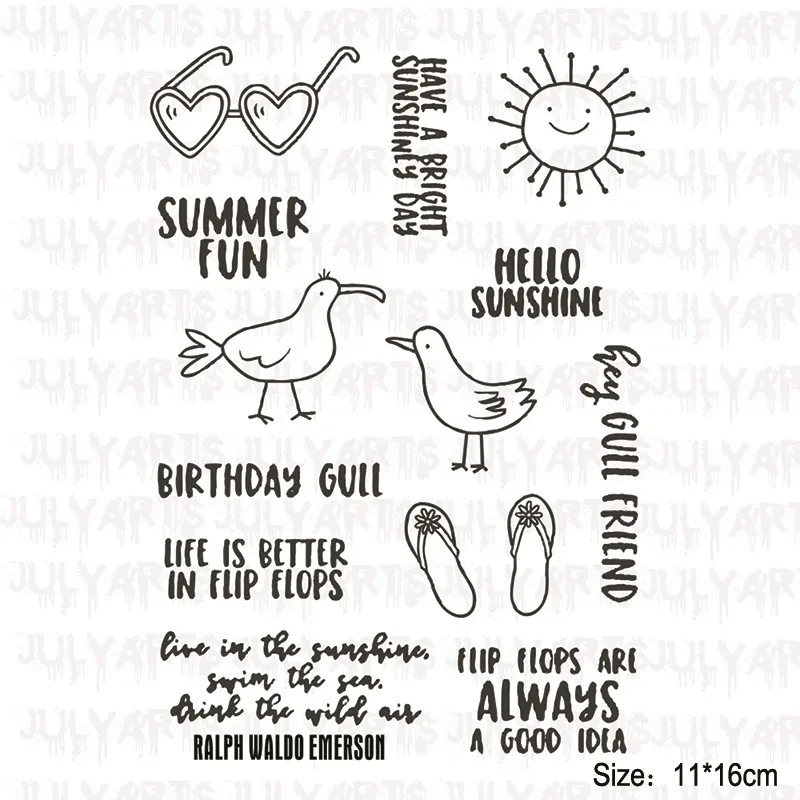 HAVE A BRIGHT
SUNSHINEY DAY
SUMMER
FUN
HELLO
SUNSHINE
hey GULL FRIEND
BIRTHDAY GULL
LIFE IS BETTER
IN FLIP FLOPS
live in the sunshine.
swim the sea.
drink the wild air
RALPH WALDO EMERSON
FLIP FLOPS ARE
ALWAYS
A GOOD IDEA
Size: 11*16cm
JULYARTS